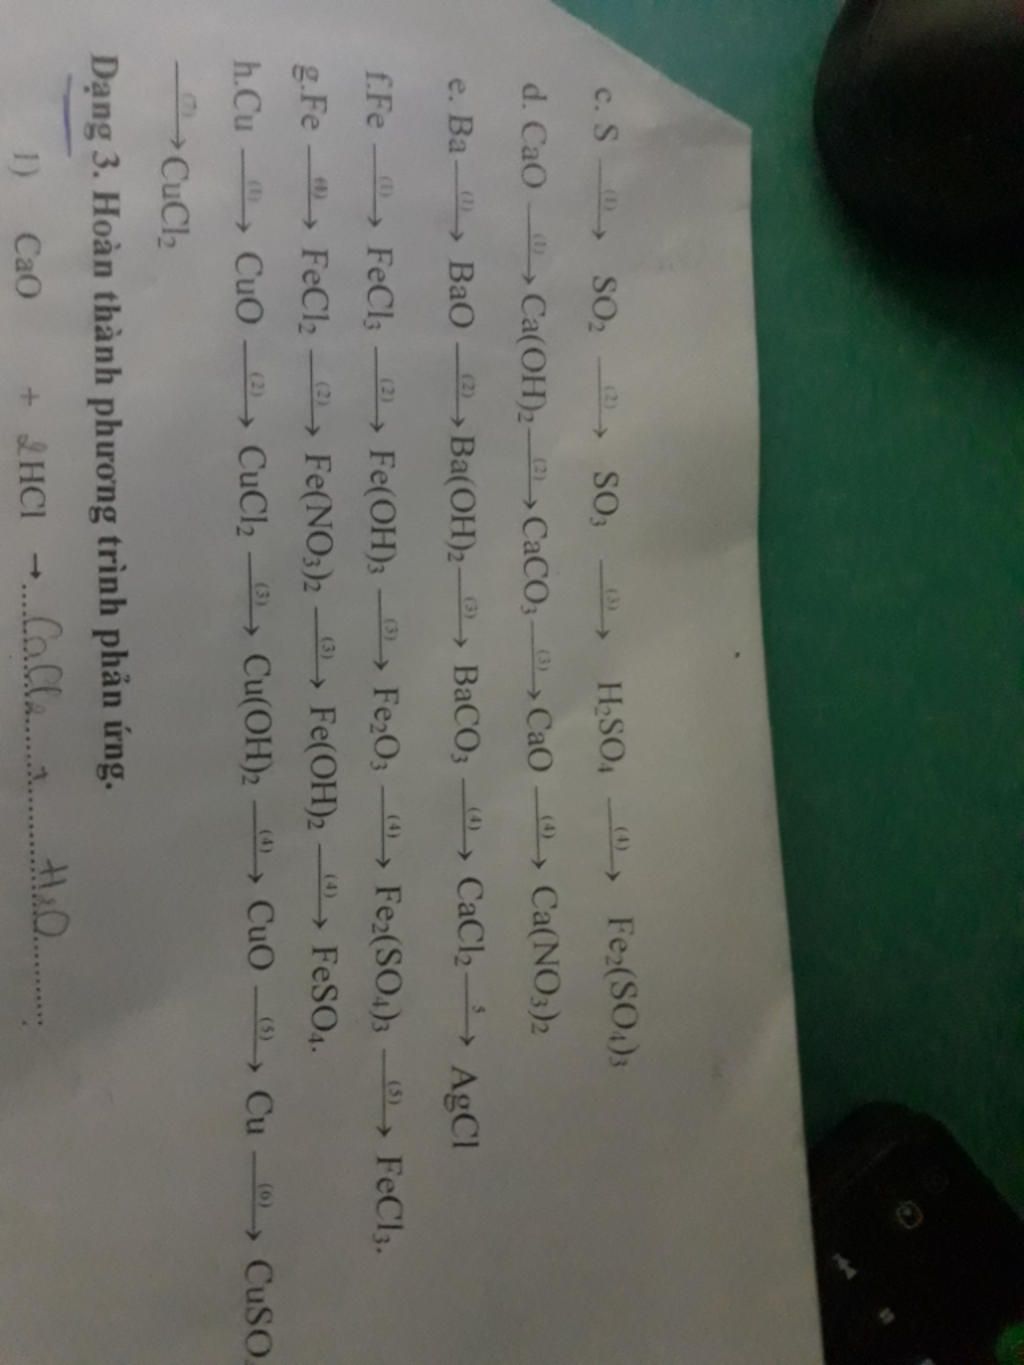 c. S —(1)→ SO₂ —(2)→ SO₃ —(3)→ H₂SO₄ —(4)→ Fe₂(SO₄)₃
d. CaO —(1)→ Ca(OH)₂ —(2)→ CaCO₃ —(3)→ CaO —(4)→ Ca(NO₃)₂
e. Ba —(1)→ BaO —(2)→ Ba(OH)₂ —(3)→ BaCO₃ —(4)→ CaCl₂ —5→ AgCl
f.Fe —(1)→ FeCl₃ —(2)→ Fe(OH)₃ —(3)→ Fe₂O₃ —(4)→ Fe₂(SO₄)₃ —(5)→ FeCl₃.
g.Fe —→ FeCl₂ —(2)→ Fe(NO₃)₂ —(3)→ Fe(OH)₂ —(4)→ FeSO₄.
h.Cu —(1)→ CuO —(2)→ CuCl₂ —(3)→ Cu(OH)₂ —(4)→ CuO —(5)→ Cu —(6)→ CuSO
—(7)→CuCl₂
Dạng 3. Hoàn thành phương trình phản ứng.
1) CaO + 2HCl → CaCl₂ + H₂O